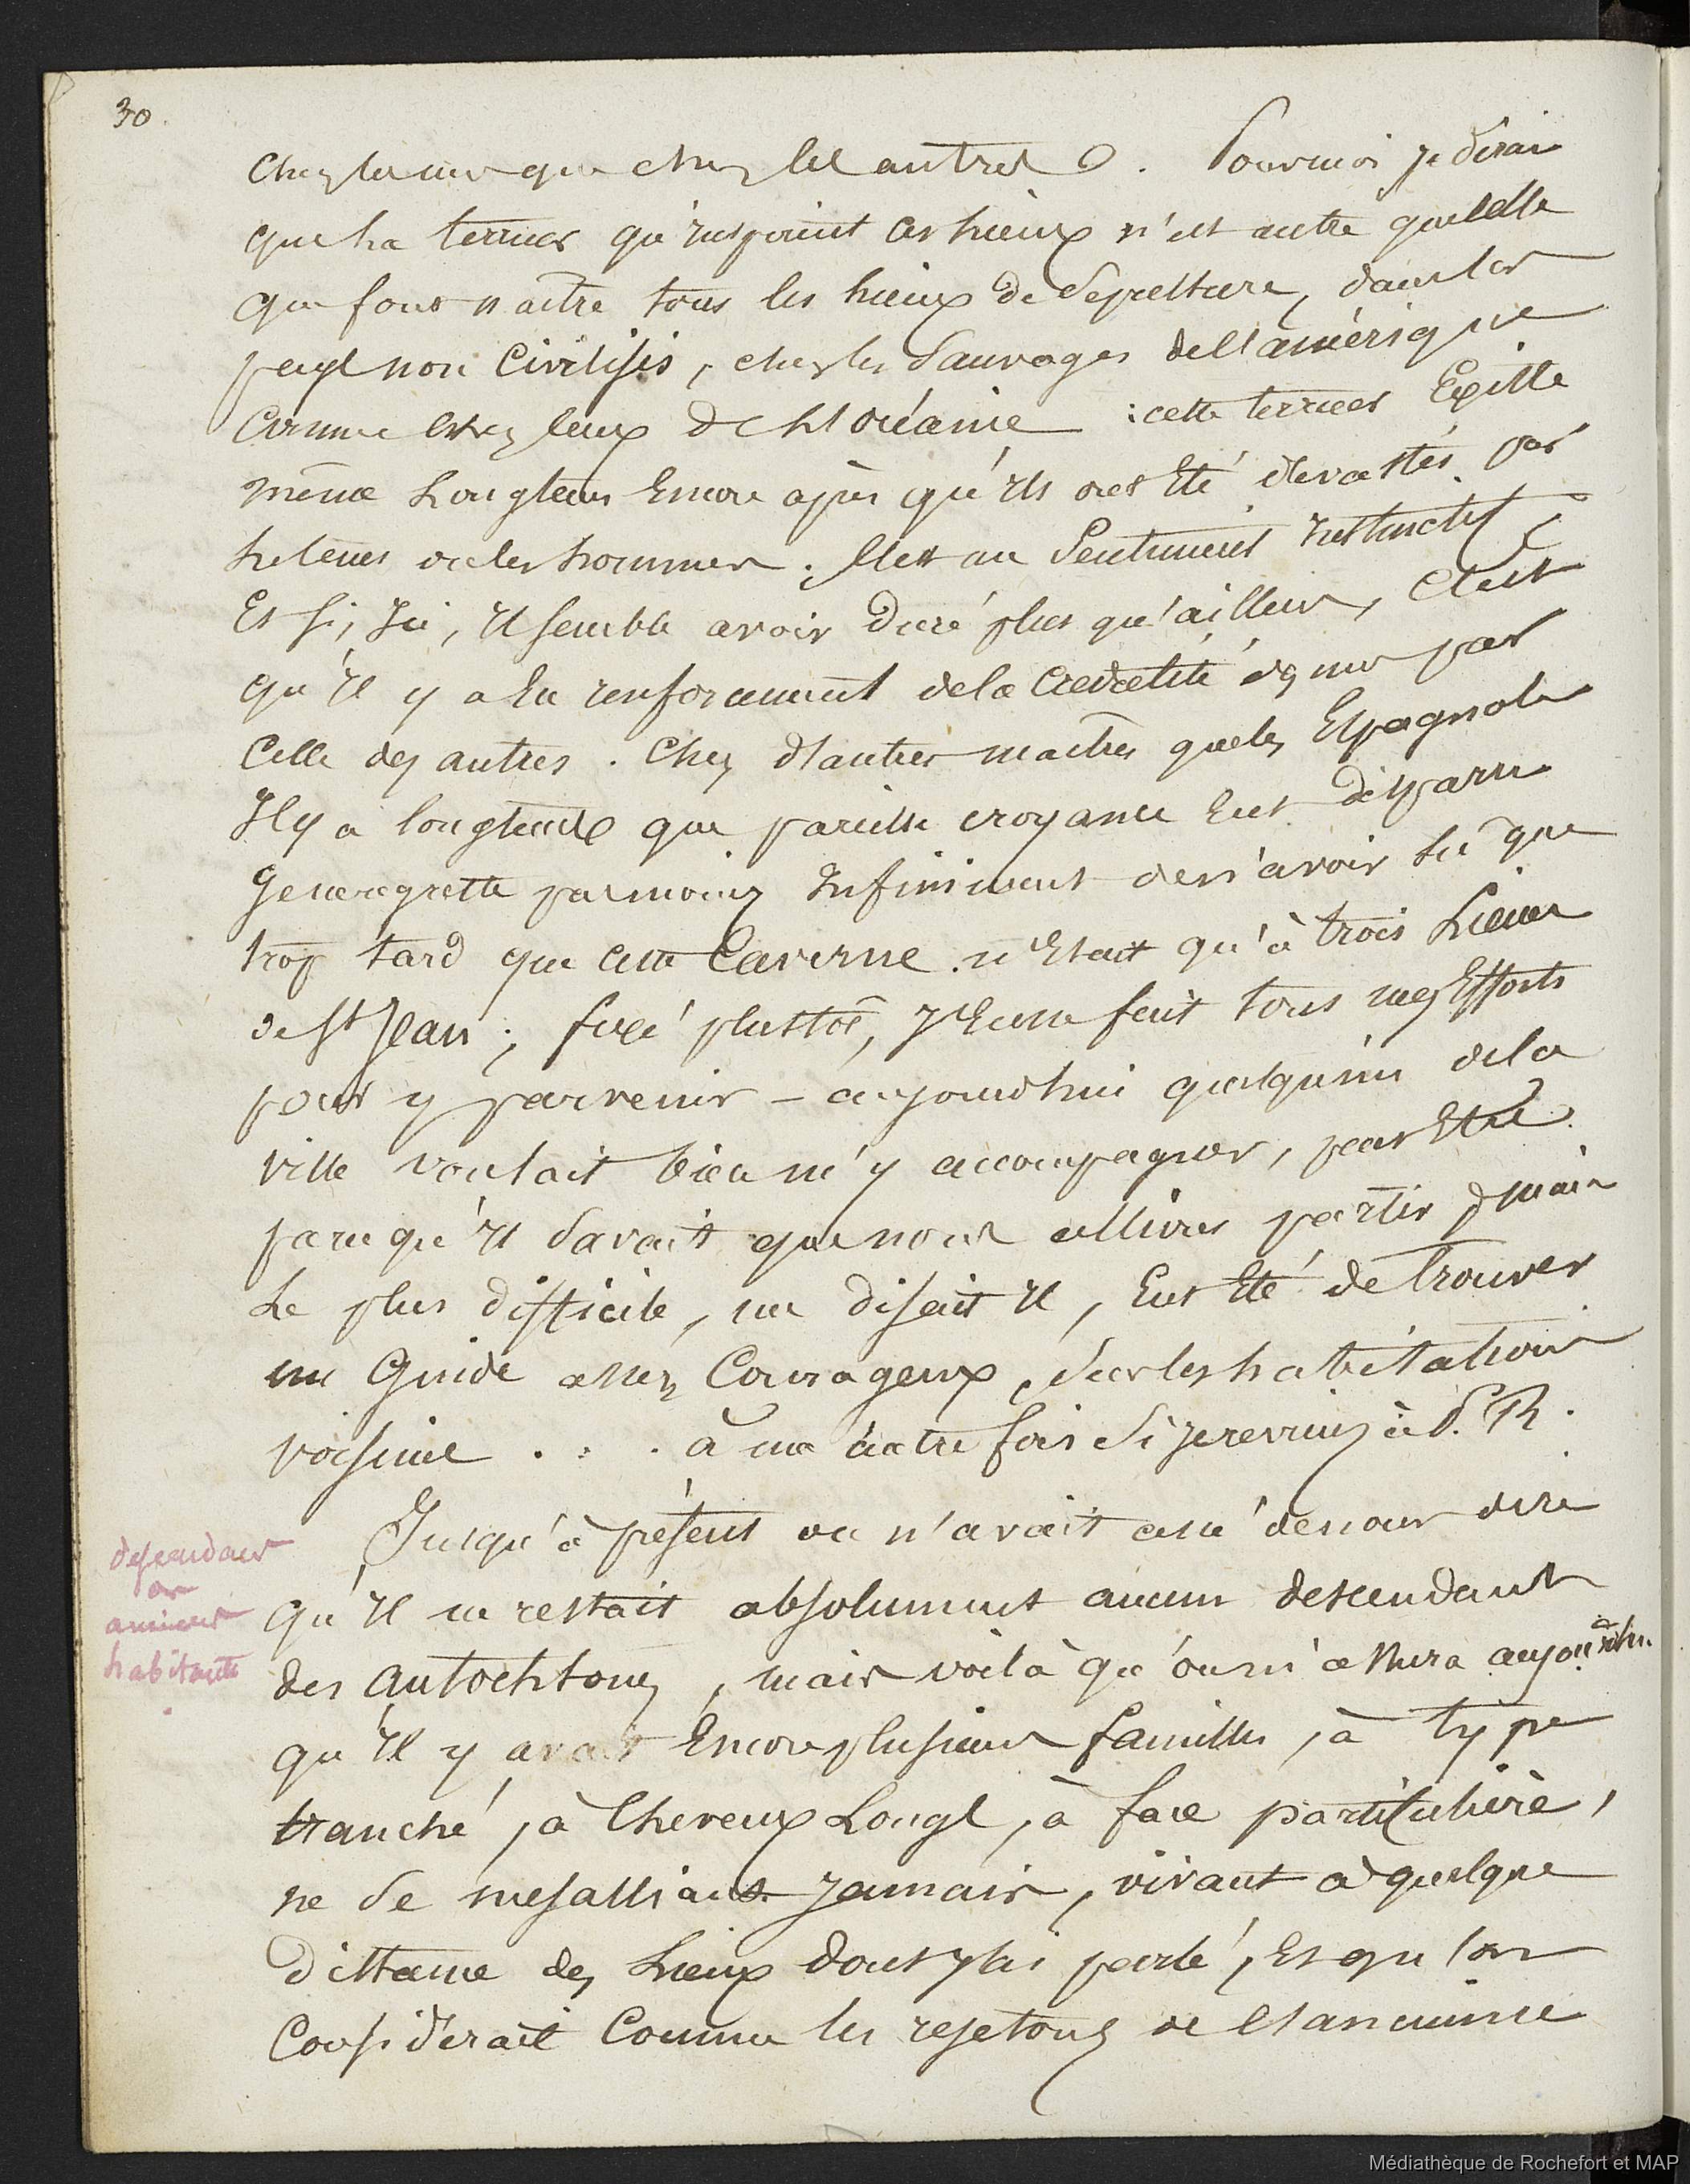 30.
chez les uns que chez les autres. Pour moi je dirai
que la terreur qu'inspirent ces lieux n'est autre que celle
que font naître tous les lieux de sépulture, dans les
pays non civilisés, chez les sauvages de l'amérique
comme chez ceux de l'océanie : cette terreur existe
même longtems encore après qu'ils ont été dévastés par
le tems ou les hommes. C'est un sentiment instinctif
Et si, ici, il semble avoir duré plus qu'ailleurs, c'est
qu'il y a eu renforcement de la crédulité des uns par
celle des autres. Chez d'autres maîtres que les Espagnols
Il y a longtems que pareille croyance eut disparu
Je ne regrette pas moins infiniment de n'avoir su que
trop tard que cette Caverne n'était qu'à trois Lieues
de St Jean ; fixé plustôt, j'eusse fait tous mes Efforts
pour y parvenir - aujourdhui quelqu'un de la
ville voulait bien m'y accompagner, peut Etre
parce qu'il savait que nous allions partir demain
Le plus difficile, me disait il, eut été de trouver
un Guide assez Courageux, sur les habitations
voisines . . . à une autre fois si je reviens à P. R.
Jusqu'à présent on n'avait cessé de nous dire
qu'il ne restait absolument aucun descendant
des autochtones, mais voilà qu'on m'assura aujourdhui
qu'il y avait Encore plusieurs familles, à type
tranché, à Cheveux Longs, à face particulière,
ne se mesalliant jamais, vivant à quelque
distance des Lieux dont j'ai parlé, Et qu'on
Considérait Comme les rejetons de l'ancienne
descendans
anciens
habitants
Médiathèque de Rochefort et MAP